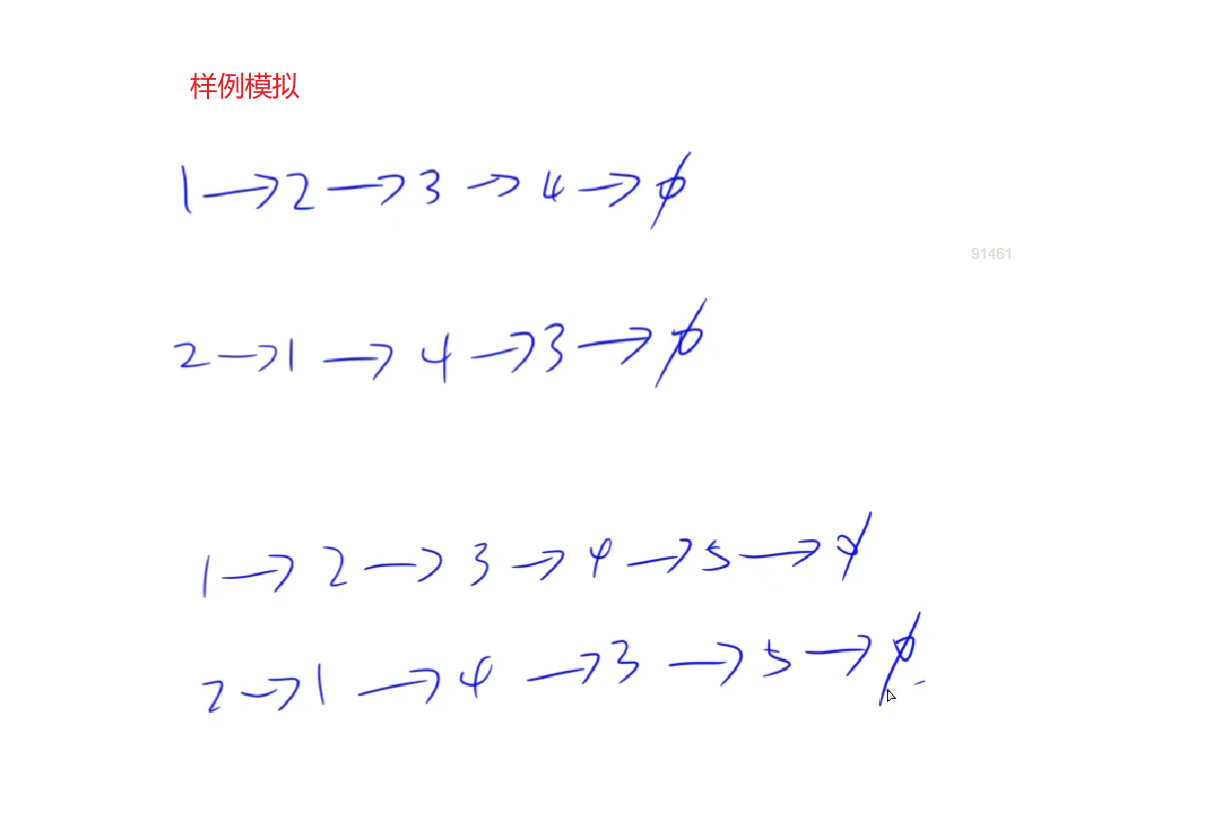 样例模拟
1→2→3→4→∅
91461
2→1→4→3→∅
1→2→3→4→5→∅
2→1→4→3→5→∅